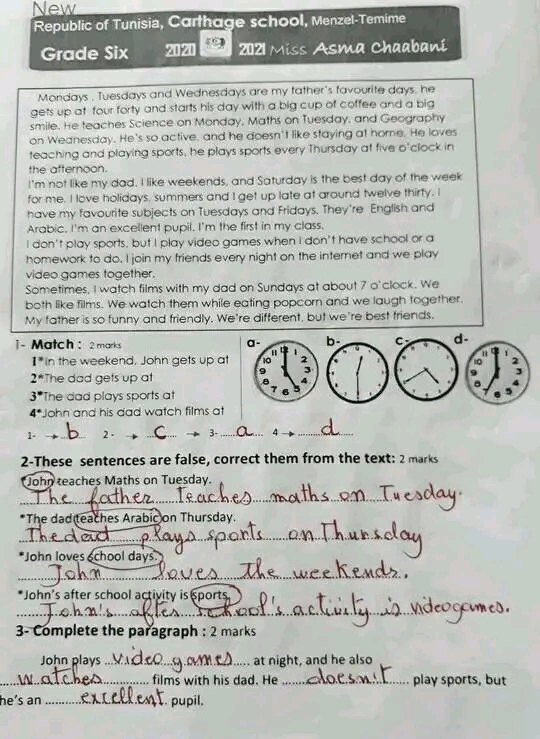 New
Republic of Tunisia, Carthage school, Menzel-Temime
Grade Six 2020 2021 Miss Asma Chaabani
Mondays , Tuesdays and Wednesdays are my father's favourite days, he
gets up at four forty and starts his day with a big cup of coffee and a big
smile. He teaches Science on Monday, Maths on Tuesday, and Geography
on Wednesday. He's so active, and he doesn't like staying at home. He loves
teaching and playing sports, he plays sports every Thursday at five o'clock in
the afternoon.
I'm not like my dad. I like weekends, and Saturday is the best day of the week
for me. I love holidays, summers and I get up late at around twelve thirty. I
have my favourite subjects on Tuesdays and Fridays. They're English and
Arabic. I'm an excellent pupil. I'm the first in my class.
I don't play sports, but I play video games when I don't have school or a
homework to do. I join my friends every night on the internet and we play
video games together.
Sometimes, I watch films with my dad on Sundays at about 7 o'clock. We
both like films. We watch them while eating popcorn and we laugh together.
My father is so funny and friendly. We're different, but we're best friends.
1- Match : 2 marks a- b- c- d-
1*In the weekend, John gets up at
2*The dad gets up at
3*The dad plays sports at
4*John and his dad watch films at
1- → b 2 - → c → 3- a 4 → d
2-These sentences are false, correct them from the text: 2 marks
*John teaches Maths on Tuesday.
The father teaches maths on Tuesday.
*The dad teaches Arabic on Thursday.
The dad plays sports on Thursday
*John loves school days.
John loves the weekends.
*John's after school activity is sports.
John's after school's activity is video games.
3- Complete the paragraph : 2 marks
John plays video games at night, and he also
watches films with his dad. He doesn't play sports, but
he's an excellent pupil.